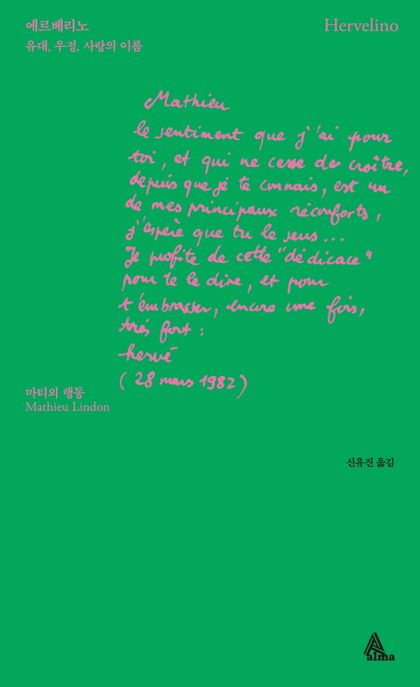 에르베리노
Hervelino
유대, 우정, 사랑의 이름
Mathieu
le sentiment que j'ai pour
toi, et qui ne cesse de croître,
depuis que je te connais, est un
de mes principaux réconforts,
j'espère que tu le sens...
Je profite de cette "dédicace"
pour te le dire, et pour
t'embrasser, encore une fois,
très fort :
hervé
(28 mars 1982)
마티외 랭동
Mathieu Lindon
신유진 옮김
alma